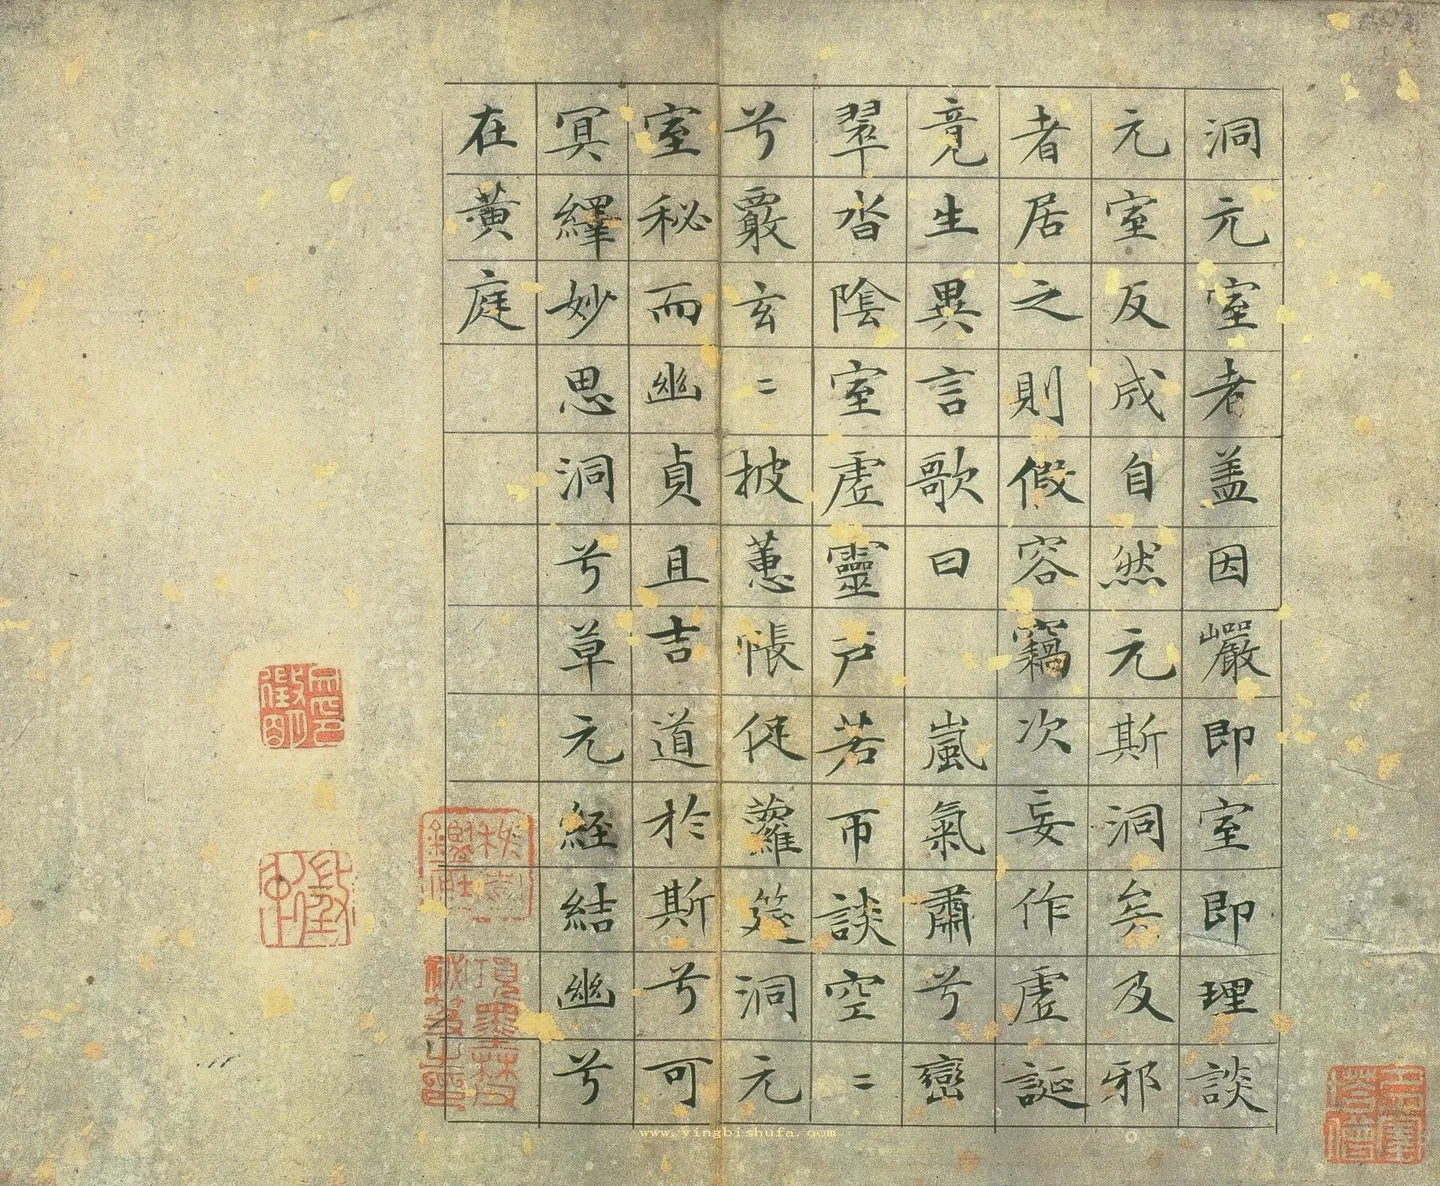 洞元室者盖因巖即室即理談
元室反成自然元斯洞矣及邪
者居之則假容竊次妄作虛誕
竟生異言歌曰 嵐氣肅兮巒
翠沓陰室虛靈戶若帀談空〻
兮覈玄〻披蕙帳促蘿筵洞元
室秘而幽貞且吉道於斯兮可
冥繹妙思洞兮草元經結幽兮
在黃庭
www.yingbishufa.com